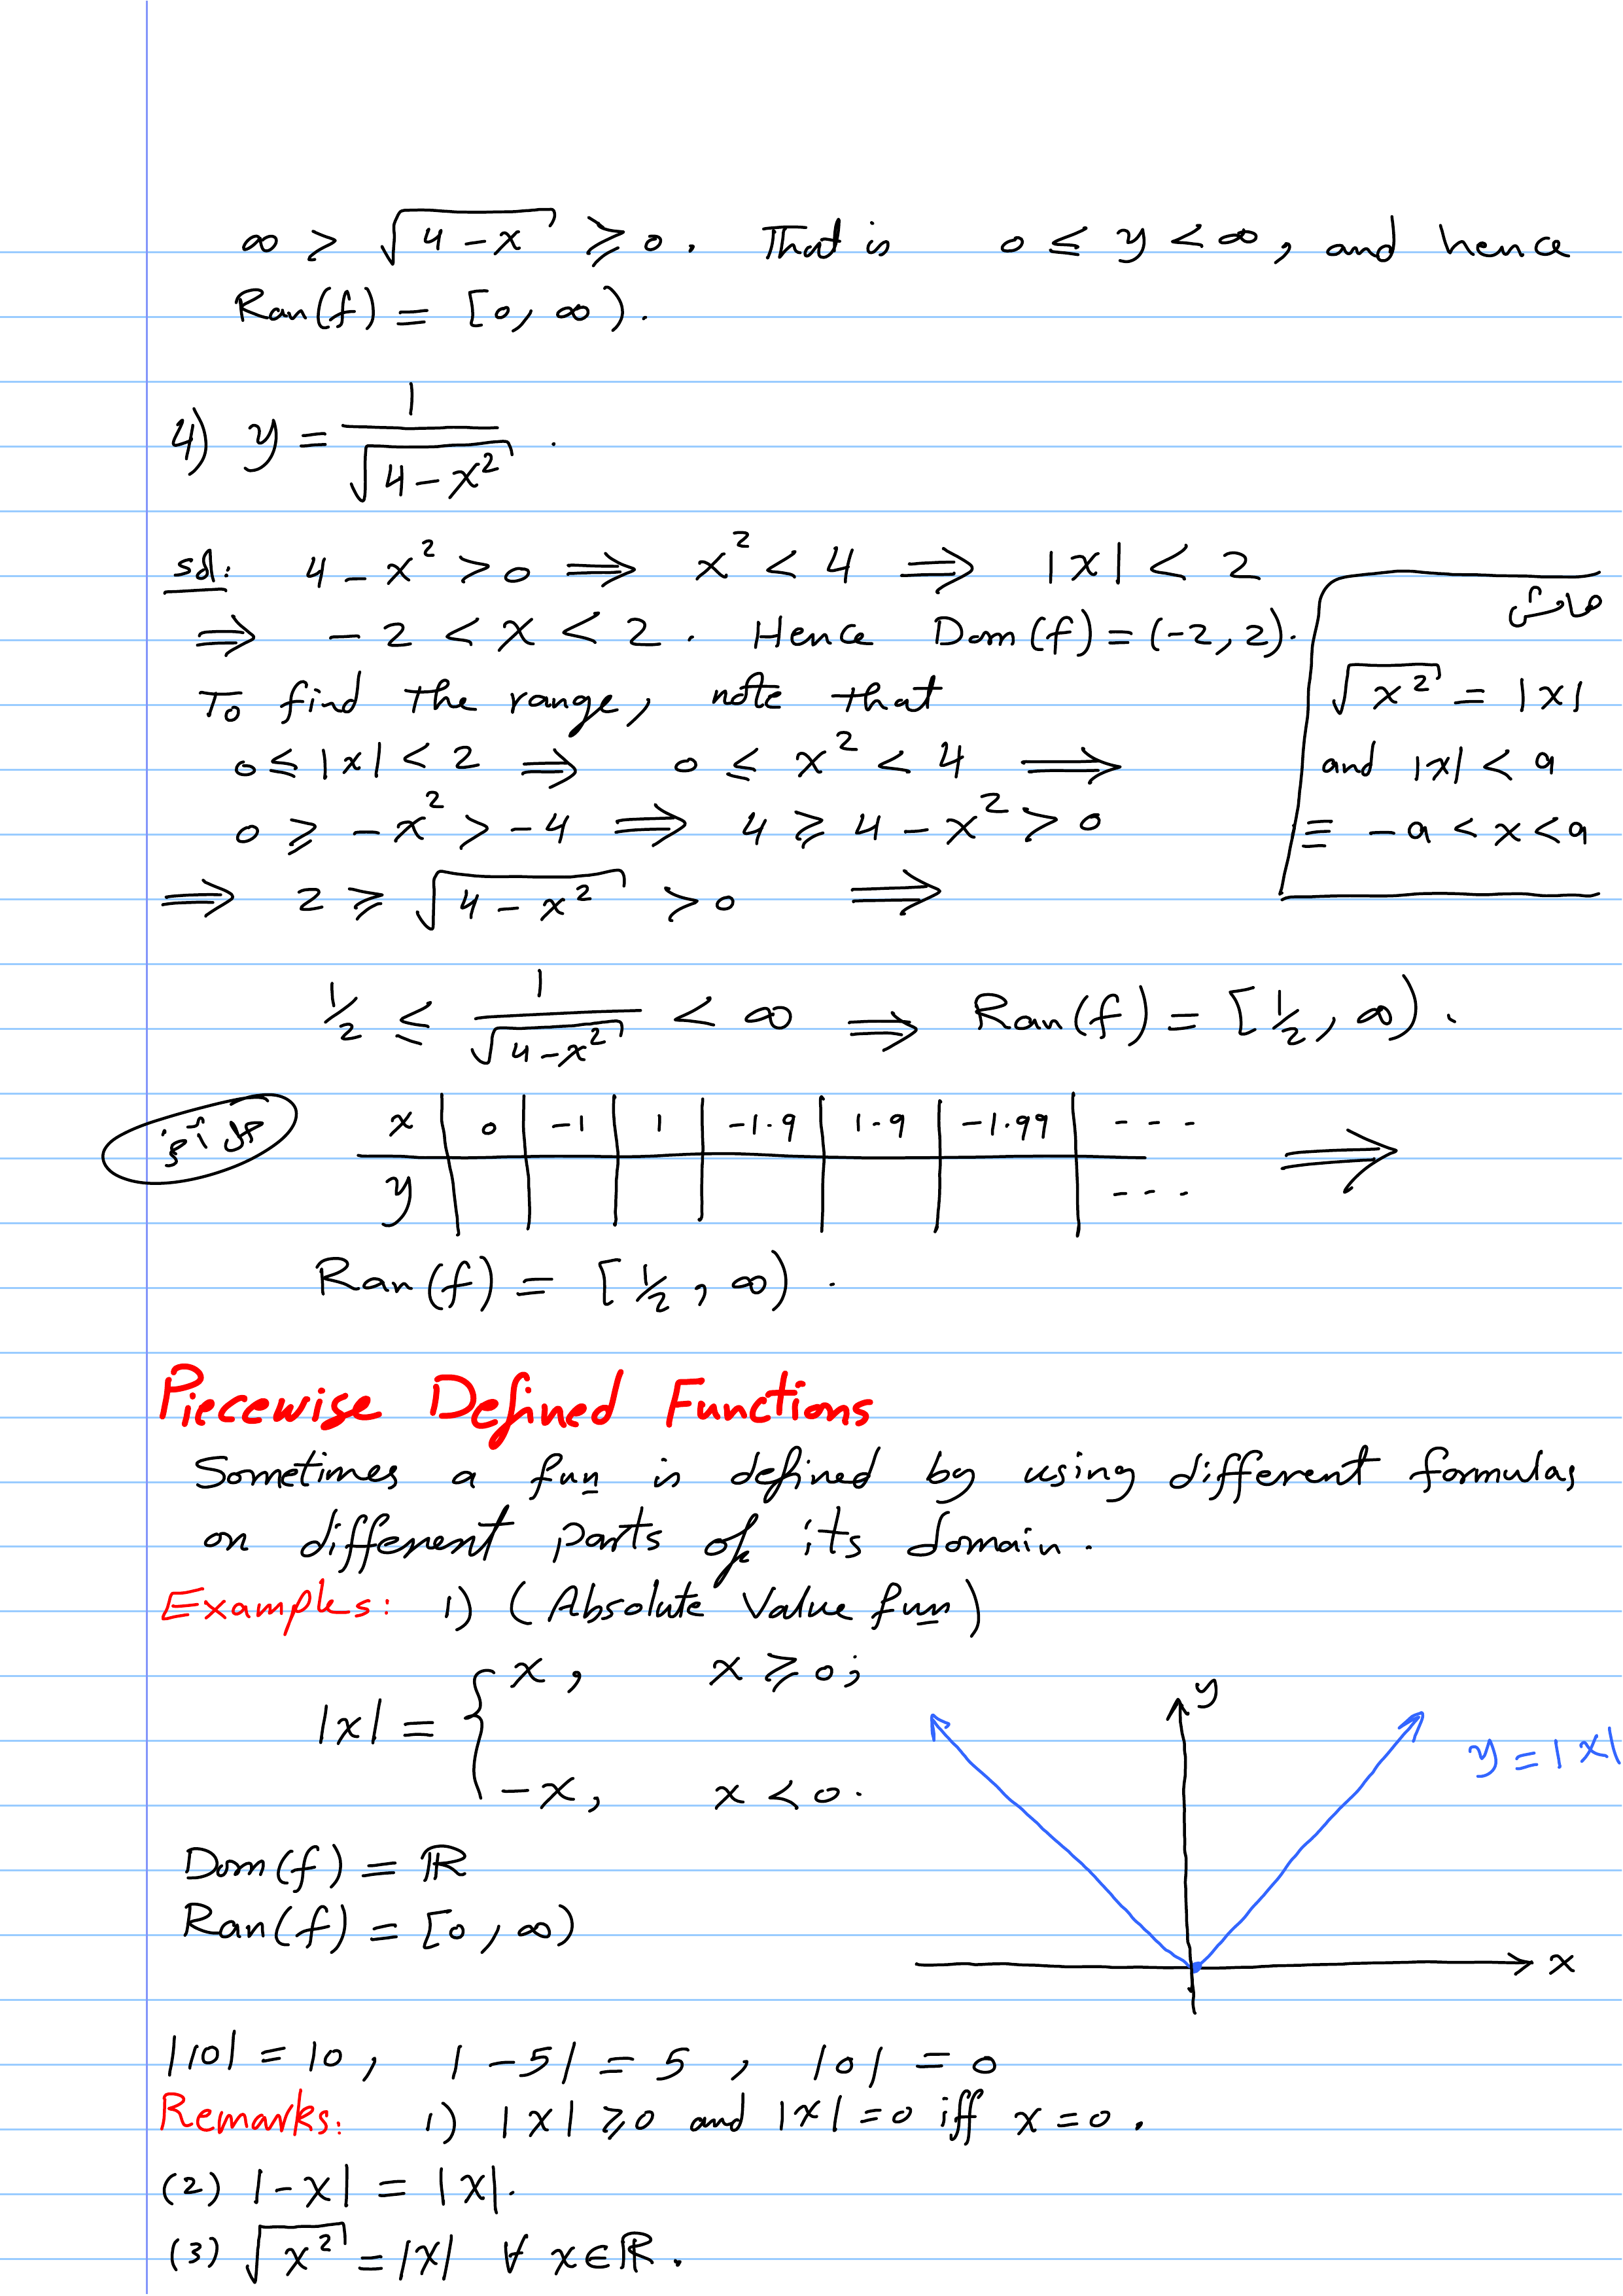 ∞ > √(4-x) ≥ 0. That is 0 ≤ y < ∞, and hence
Ran(f) = [0, ∞).
4) y = 1/√(4-x²) .
sol: 4-x² > 0 ⟹ x² < 4 ⟹ |x| < 2
⟹ -2 < x < 2. Hence Dom(f) = (-2, 2).
To find the range, note that
0 ≤ |x| < 2 ⟹ 0 ≤ x² < 4 ⟹
0 ≥ -x² > -4 ⟹ 4 ≥ 4-x² > 0
⟹ 2 ≥ √(4-x²) > 0 ⟹
هامش
√(x²) = |x|
and |x| < a
≡ -a < x < a
1/2 ≤ 1/√(4-x²) < ∞ ⟹ Ran(f) = [1/2, ∞).
حل آخر
x | 0 | -1 | 1 | -1.9 | 1.9 | -1.99 | --- ⟹
y | | | | | | | ---
Ran(f) = [1/2, ∞).
Piecewise Defined Functions
Sometimes a fun is defined by using different formulas
on different parts of its domain.
Examples: 1) (Absolute Value fun)
|x| = { x, x ≥ 0;
-x, x < 0.
y
y = |x|
x
Dom(f) = ℝ
Ran(f) = [0, ∞)
|10| = 10, |-5| = 5, |0| = 0
Remarks: 1) |x| ≥ 0 and |x| = 0 iff x = 0.
(2) |-x| = |x|.
(3) √(x²) = |x| ∀ x∈ℝ.